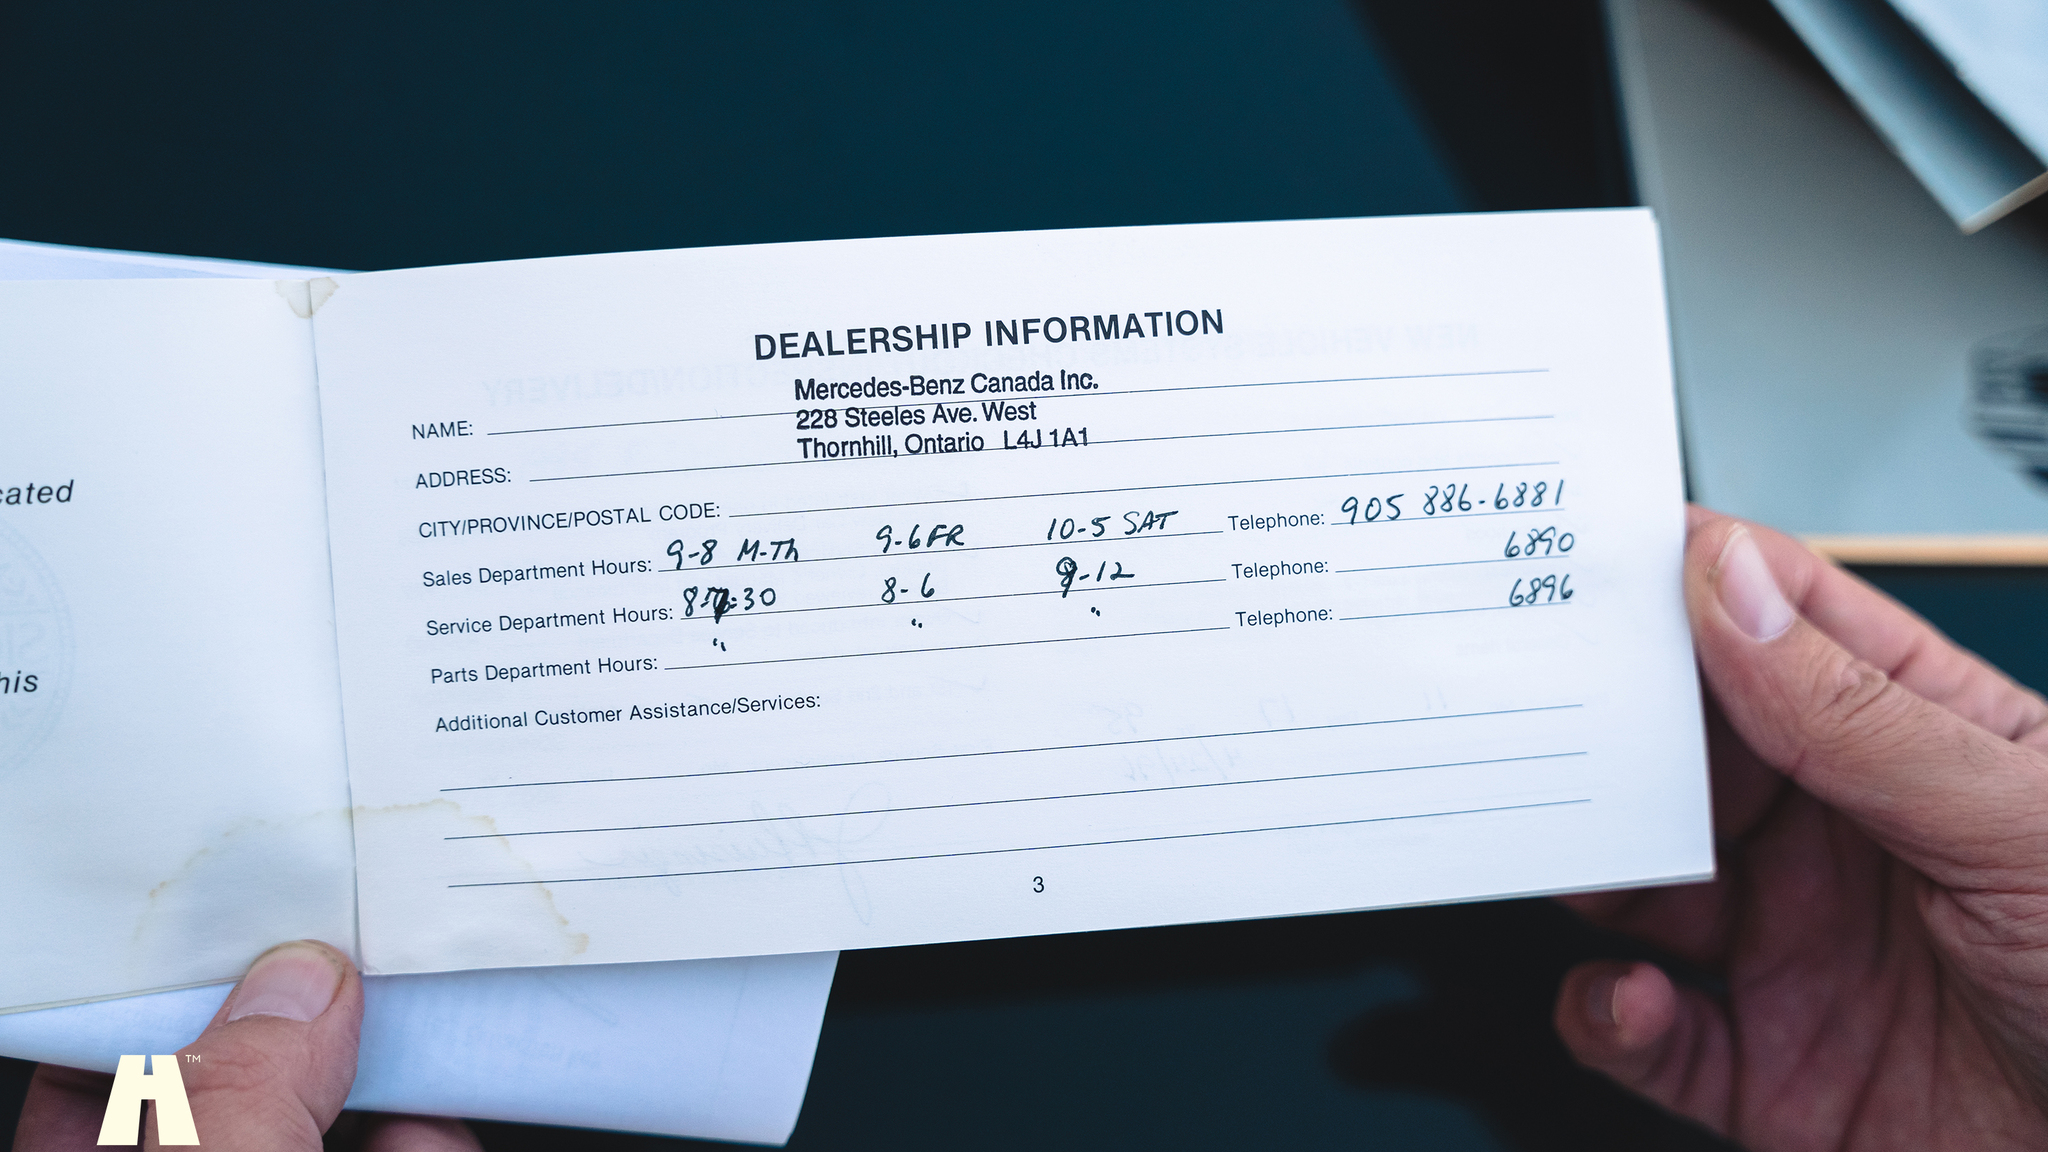 cated
his
DEALERSHIP INFORMATION
Mercedes-Benz Canada Inc.
228 Steeles Ave. West
Thornhill, Ontario L4J 1A1
NAME:
ADDRESS:
CITY/PROVINCE/POSTAL CODE:
Sales Department Hours: 9-8 M-Th 9-6 FR 10-5 SAT Telephone: 905 886-6881
Service Department Hours: 8-7:30 8-6 9-12 Telephone: 6890
Parts Department Hours: " " " Telephone: 6896
Additional Customer Assistance/Services:
3
H™